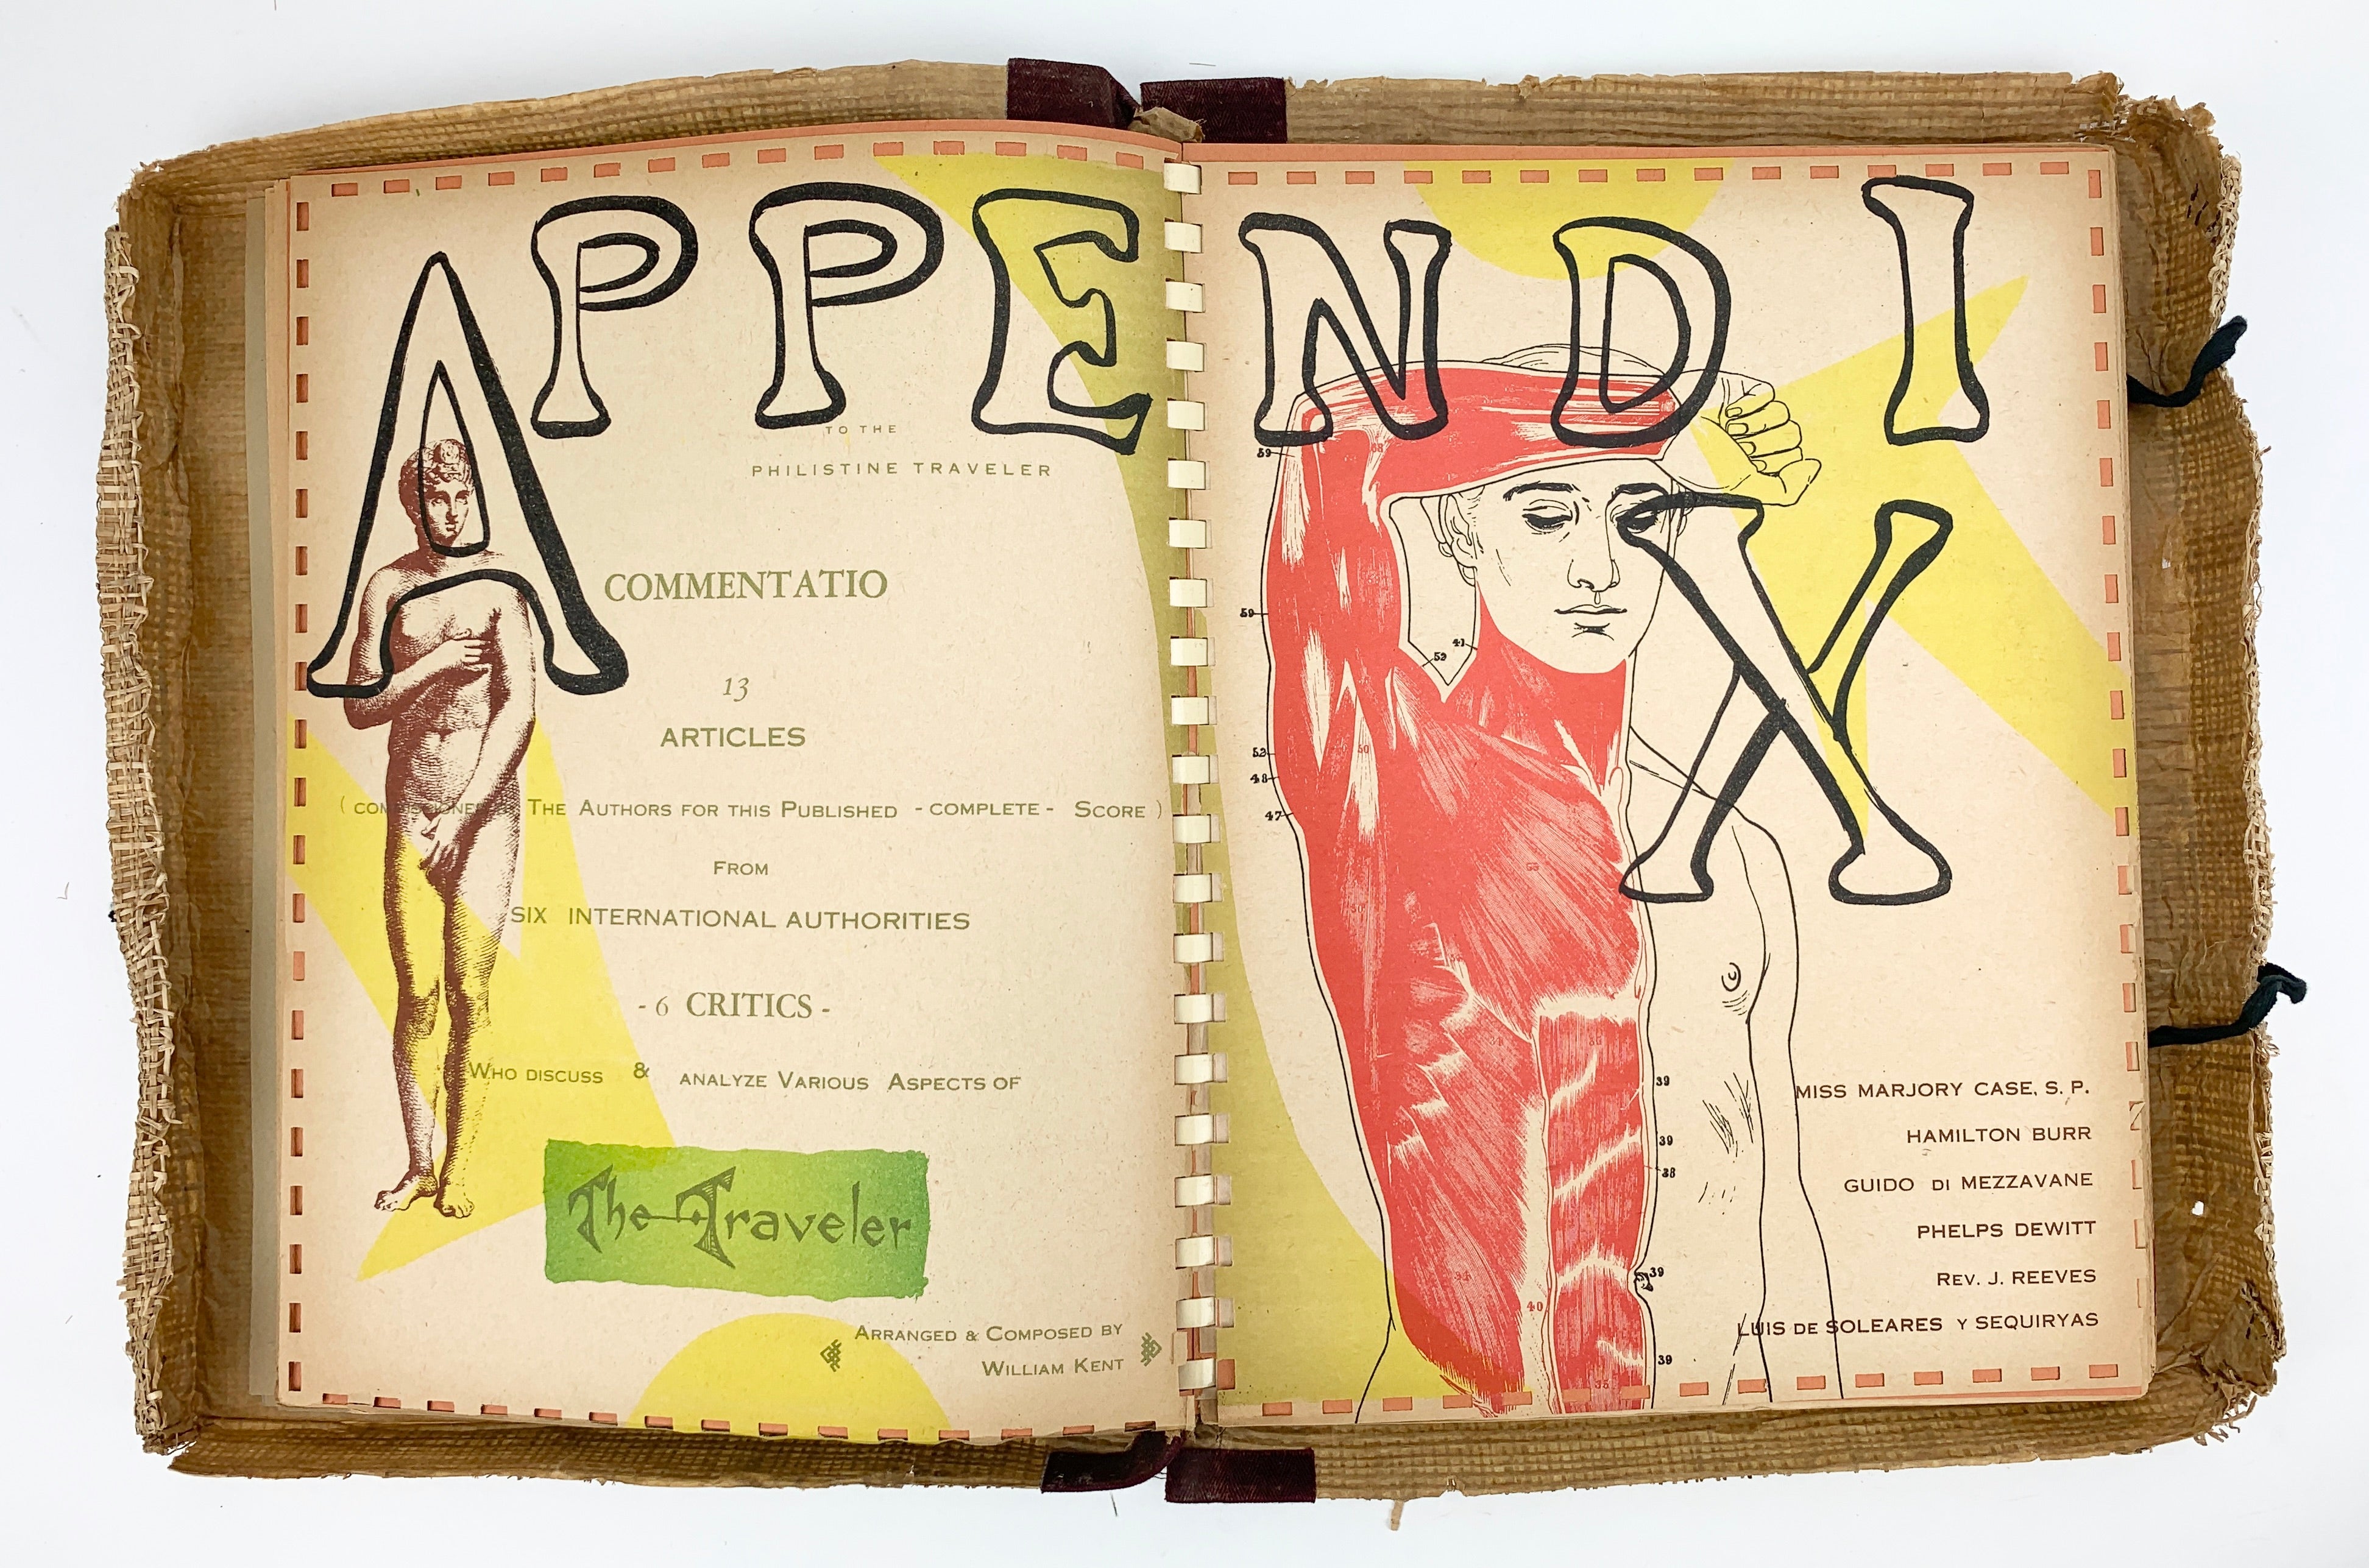 APPENDIX
TO THE
PHILISTINE TRAVELER
COMMENTATIO
13
ARTICLES
( COMMISSIONED BY THE AUTHORS FOR THIS PUBLISHED - COMPLETE - SCORE )
FROM
SIX INTERNATIONAL AUTHORITIES
- 6 CRITICS -
WHO DISCUSS & ANALYZE VARIOUS ASPECTS OF
The Traveler
ARRANGED & COMPOSED BY
WILLIAM KENT
59
68
59
41
52
50
52
48
47
39
39
38
39
40
39
MISS MARJORY CASE, S. P.
HAMILTON BURR
GUIDO DI MEZZAVANE
PHELPS DEWITT
REV. J. REEVES
LUIS DE SOLEARES Y SEQUIRYAS